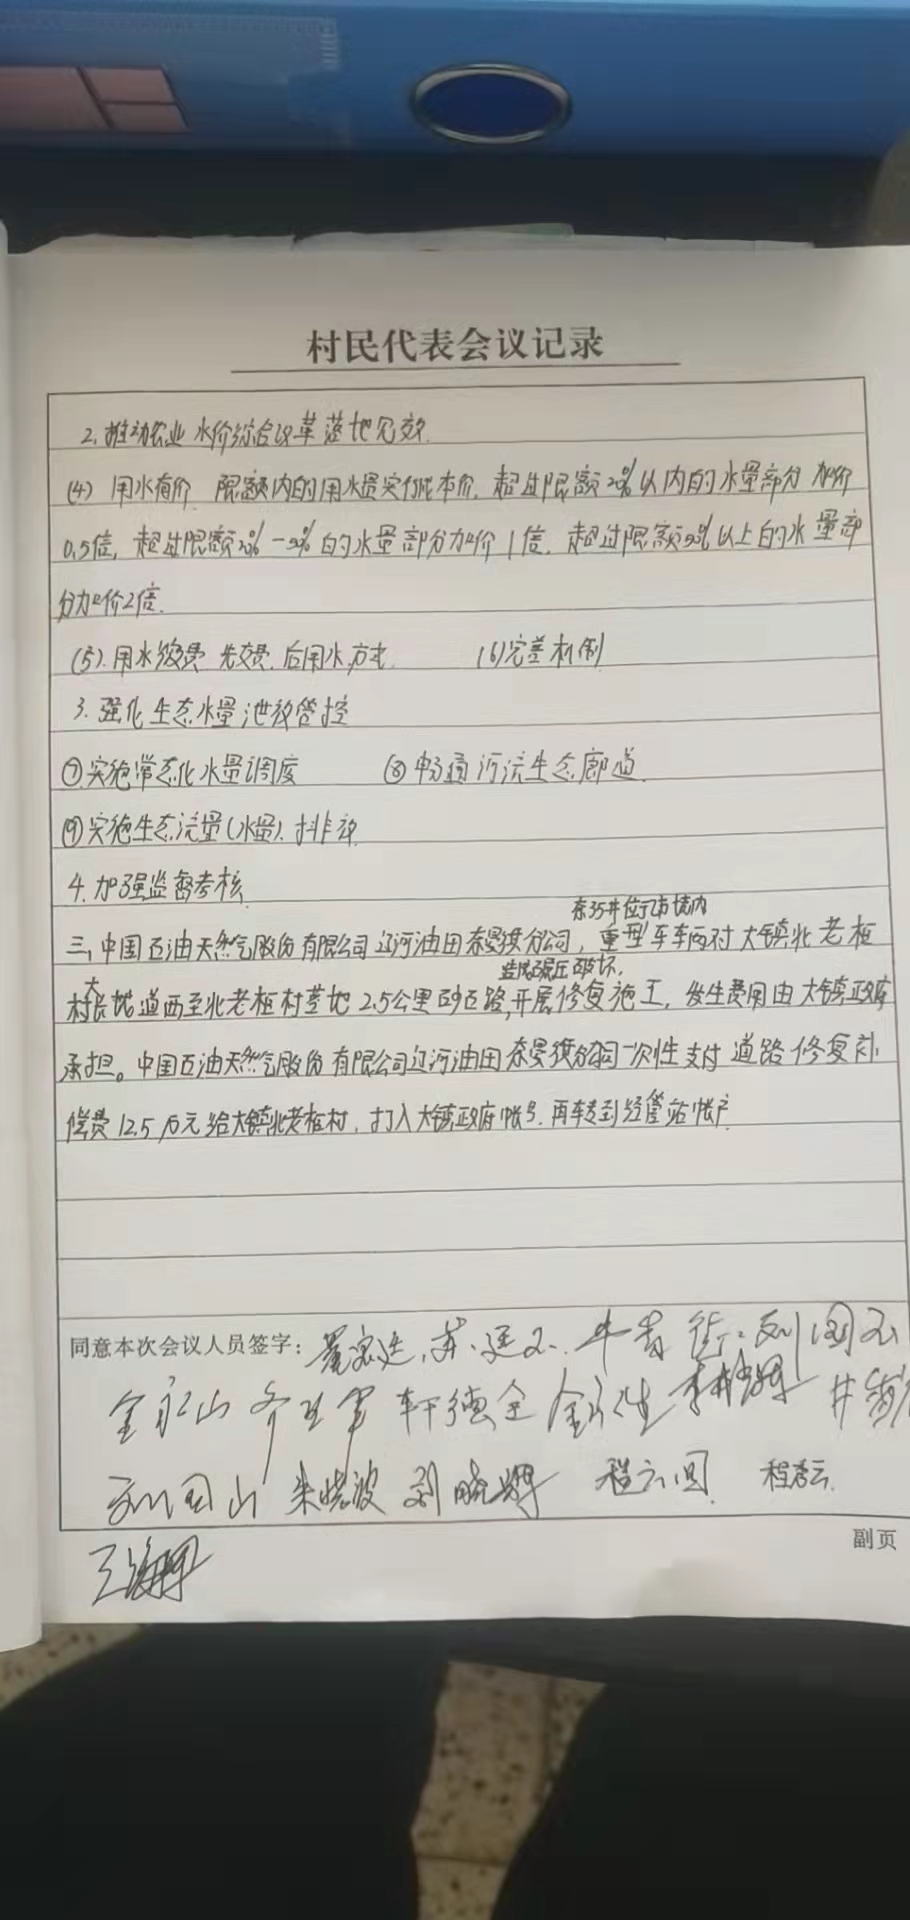 村民代表会议记录
2. 推动农业水价综合改革落地见效.
(4) 用水有价 限额内的用水量实行成本价. 超过限额20%以内的水量部分加价
0.5倍, 超过限额20%-50%的水量部分加价1倍. 超过限额50%以上的水量部
分加价2倍.
(5). 用水缴费 先交费. 后用水方式. (6)完善机制
3. 强化生态水量泄放管控
⑦实施常态化水量调度 ⑧畅通河流生态廊道.
⑨实施生态流量(水量). 排放
4. 加强监督考核.
奈35井位于市境内
三, 中国石油天然气股份有限公司辽河油田奈曼分公司, 重型车辆对大镇北老柜
大 造成碾压破坏,
村 地道西至北老柜村草地2.5公里砂石路, 开展修复施工, 发生费用由大镇政府
承担。中国石油天然气股份有限公司辽河油田奈曼分公司一次性支付道路修复补
偿费12.5万元给大镇北老柜村, 打入大镇政府帐号. 再转到经管站帐户
同意本次会议人员签字:
金永山 齐 军 轩德全
刘国山 朱晓波 刘晓辉 程云国 程春云
副页
王海